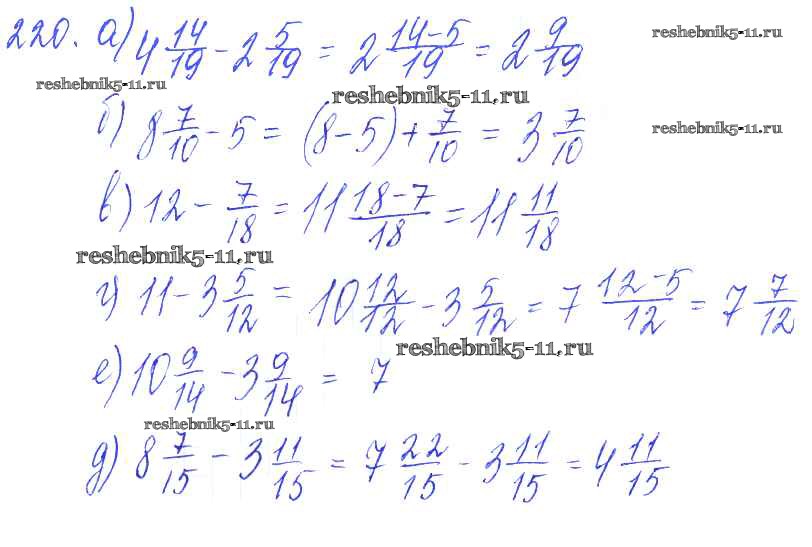 220. а) 4 14/19 - 2 5/19 = 2 (14-5)/19 = 2 9/19
reshebnik5-11.ru
reshebnik5-11.ru
reshebnik5-11.ru
б) 8 7/10 - 5 = (8-5) + 7/10 = 3 7/10
reshebnik5-11.ru
в) 12 - 7/18 = 11 (18-7)/18 = 11 11/18
reshebnik5-11.ru
г) 11 - 3 5/12 = 10 12/12 - 3 5/12 = 7 (12-5)/12 = 7 7/12
reshebnik5-11.ru
е) 10 9/14 - 3 9/14 = 7
reshebnik5-11.ru
д) 8 7/15 - 3 11/15 = 7 22/15 - 3 11/15 = 4 11/15